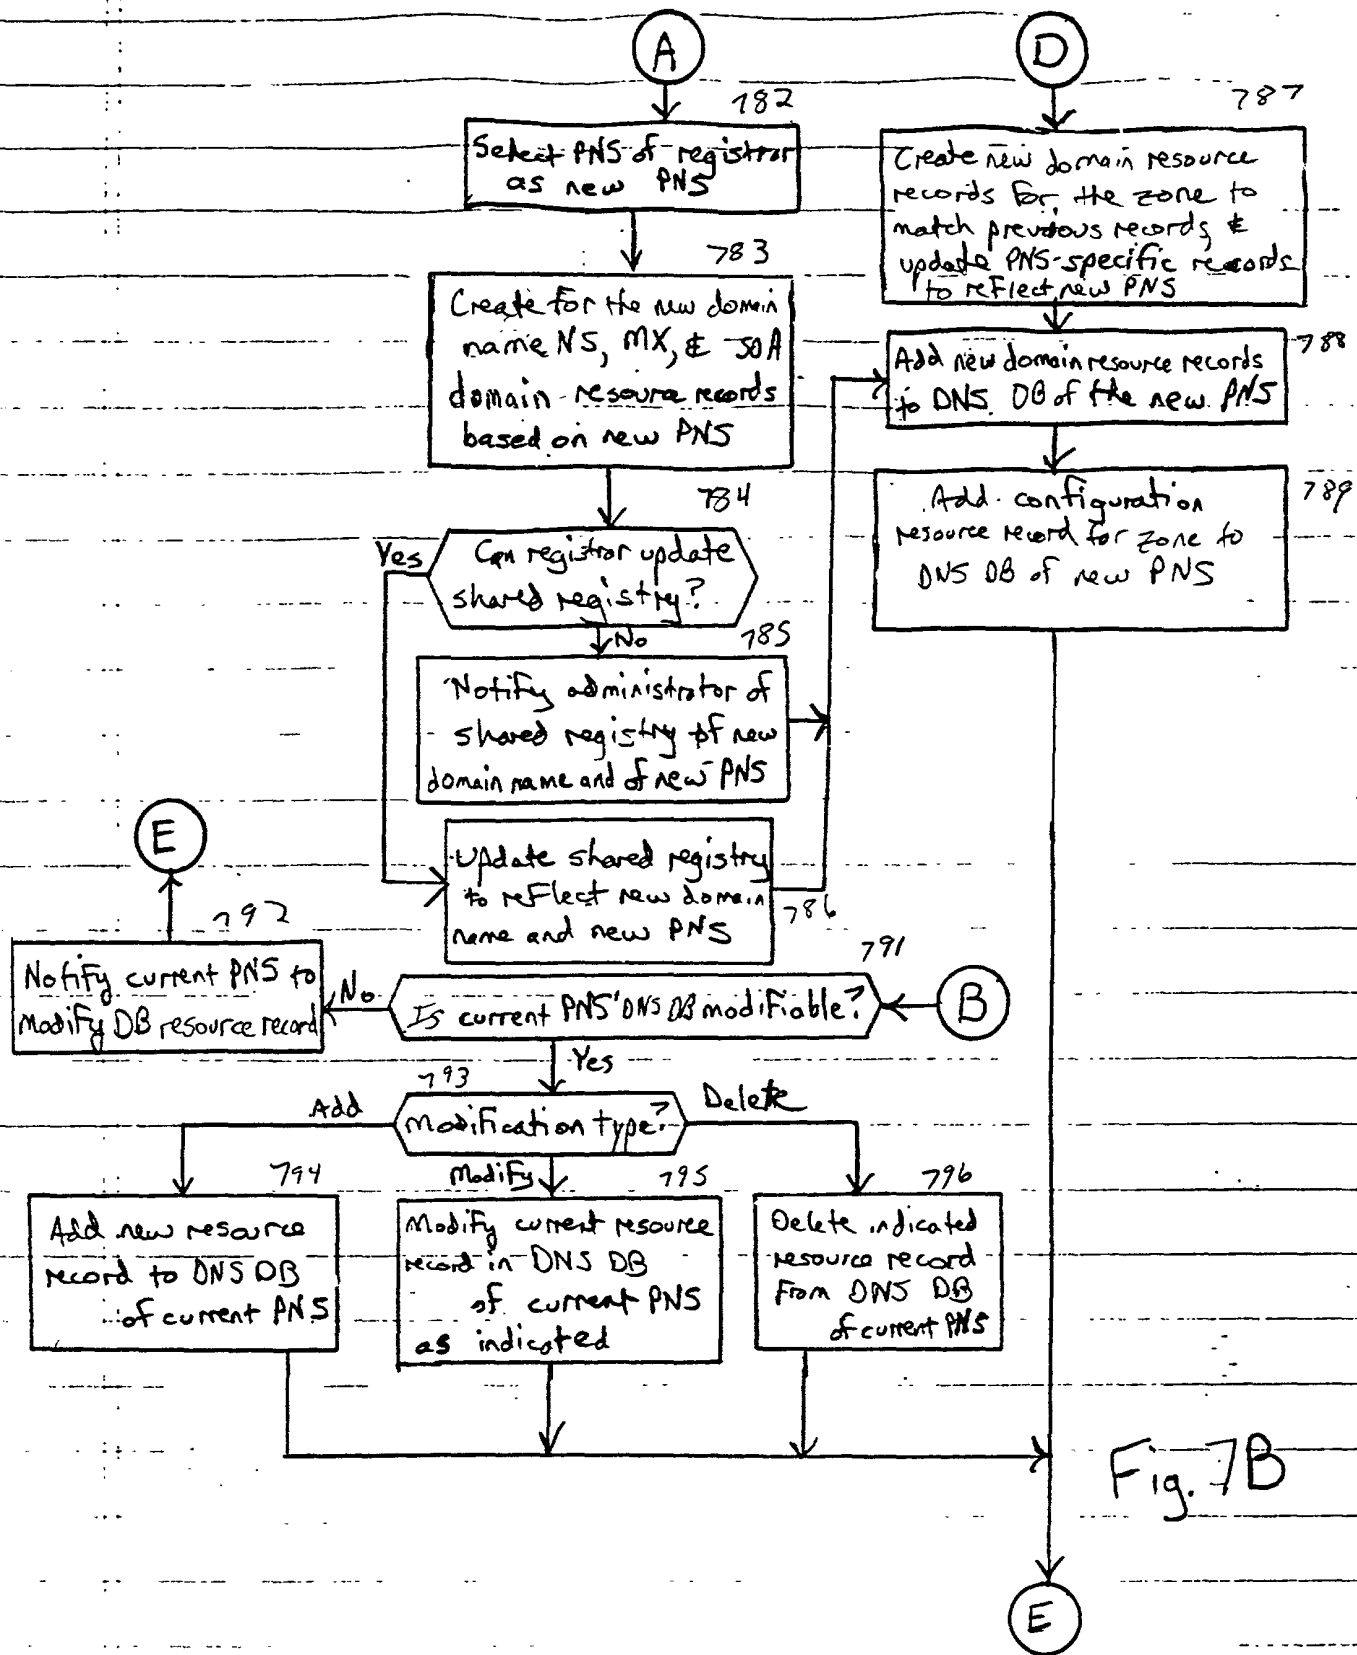 A
782
Select PNS of registrar
as new PNS
783
Create for the new domain
name NS, MX, & SOA
domain resource records
based on new PNS
784
Can registrar update
shared registry?
Yes
No
785
Notify administrator of
shared registry of new
domain name and of new PNS
Update shared registry
to reflect new domain
name and new PNS
786
D
787
Create new domain resource
records for the zone to
match previous records, &
update PNS-specific records
to reflect new PNS
788
Add new domain resource records
to DNS DB of the new PNS
789
Add configuration
resource record for zone to
DNS DB of new PNS
E
792
Notify current PNS to
modify DB resource record
No
791
Is current PNS' DNS DB modifiable?
B
Yes
793
Modification type?
Add
Modify
Delete
794
Add new resource
record to DNS DB
of current PNS
795
Modify current resource
record in DNS DB
of current PNS
as indicated
796
Delete indicated
resource record
from DNS DB
of current PNS
Fig. 7B
E